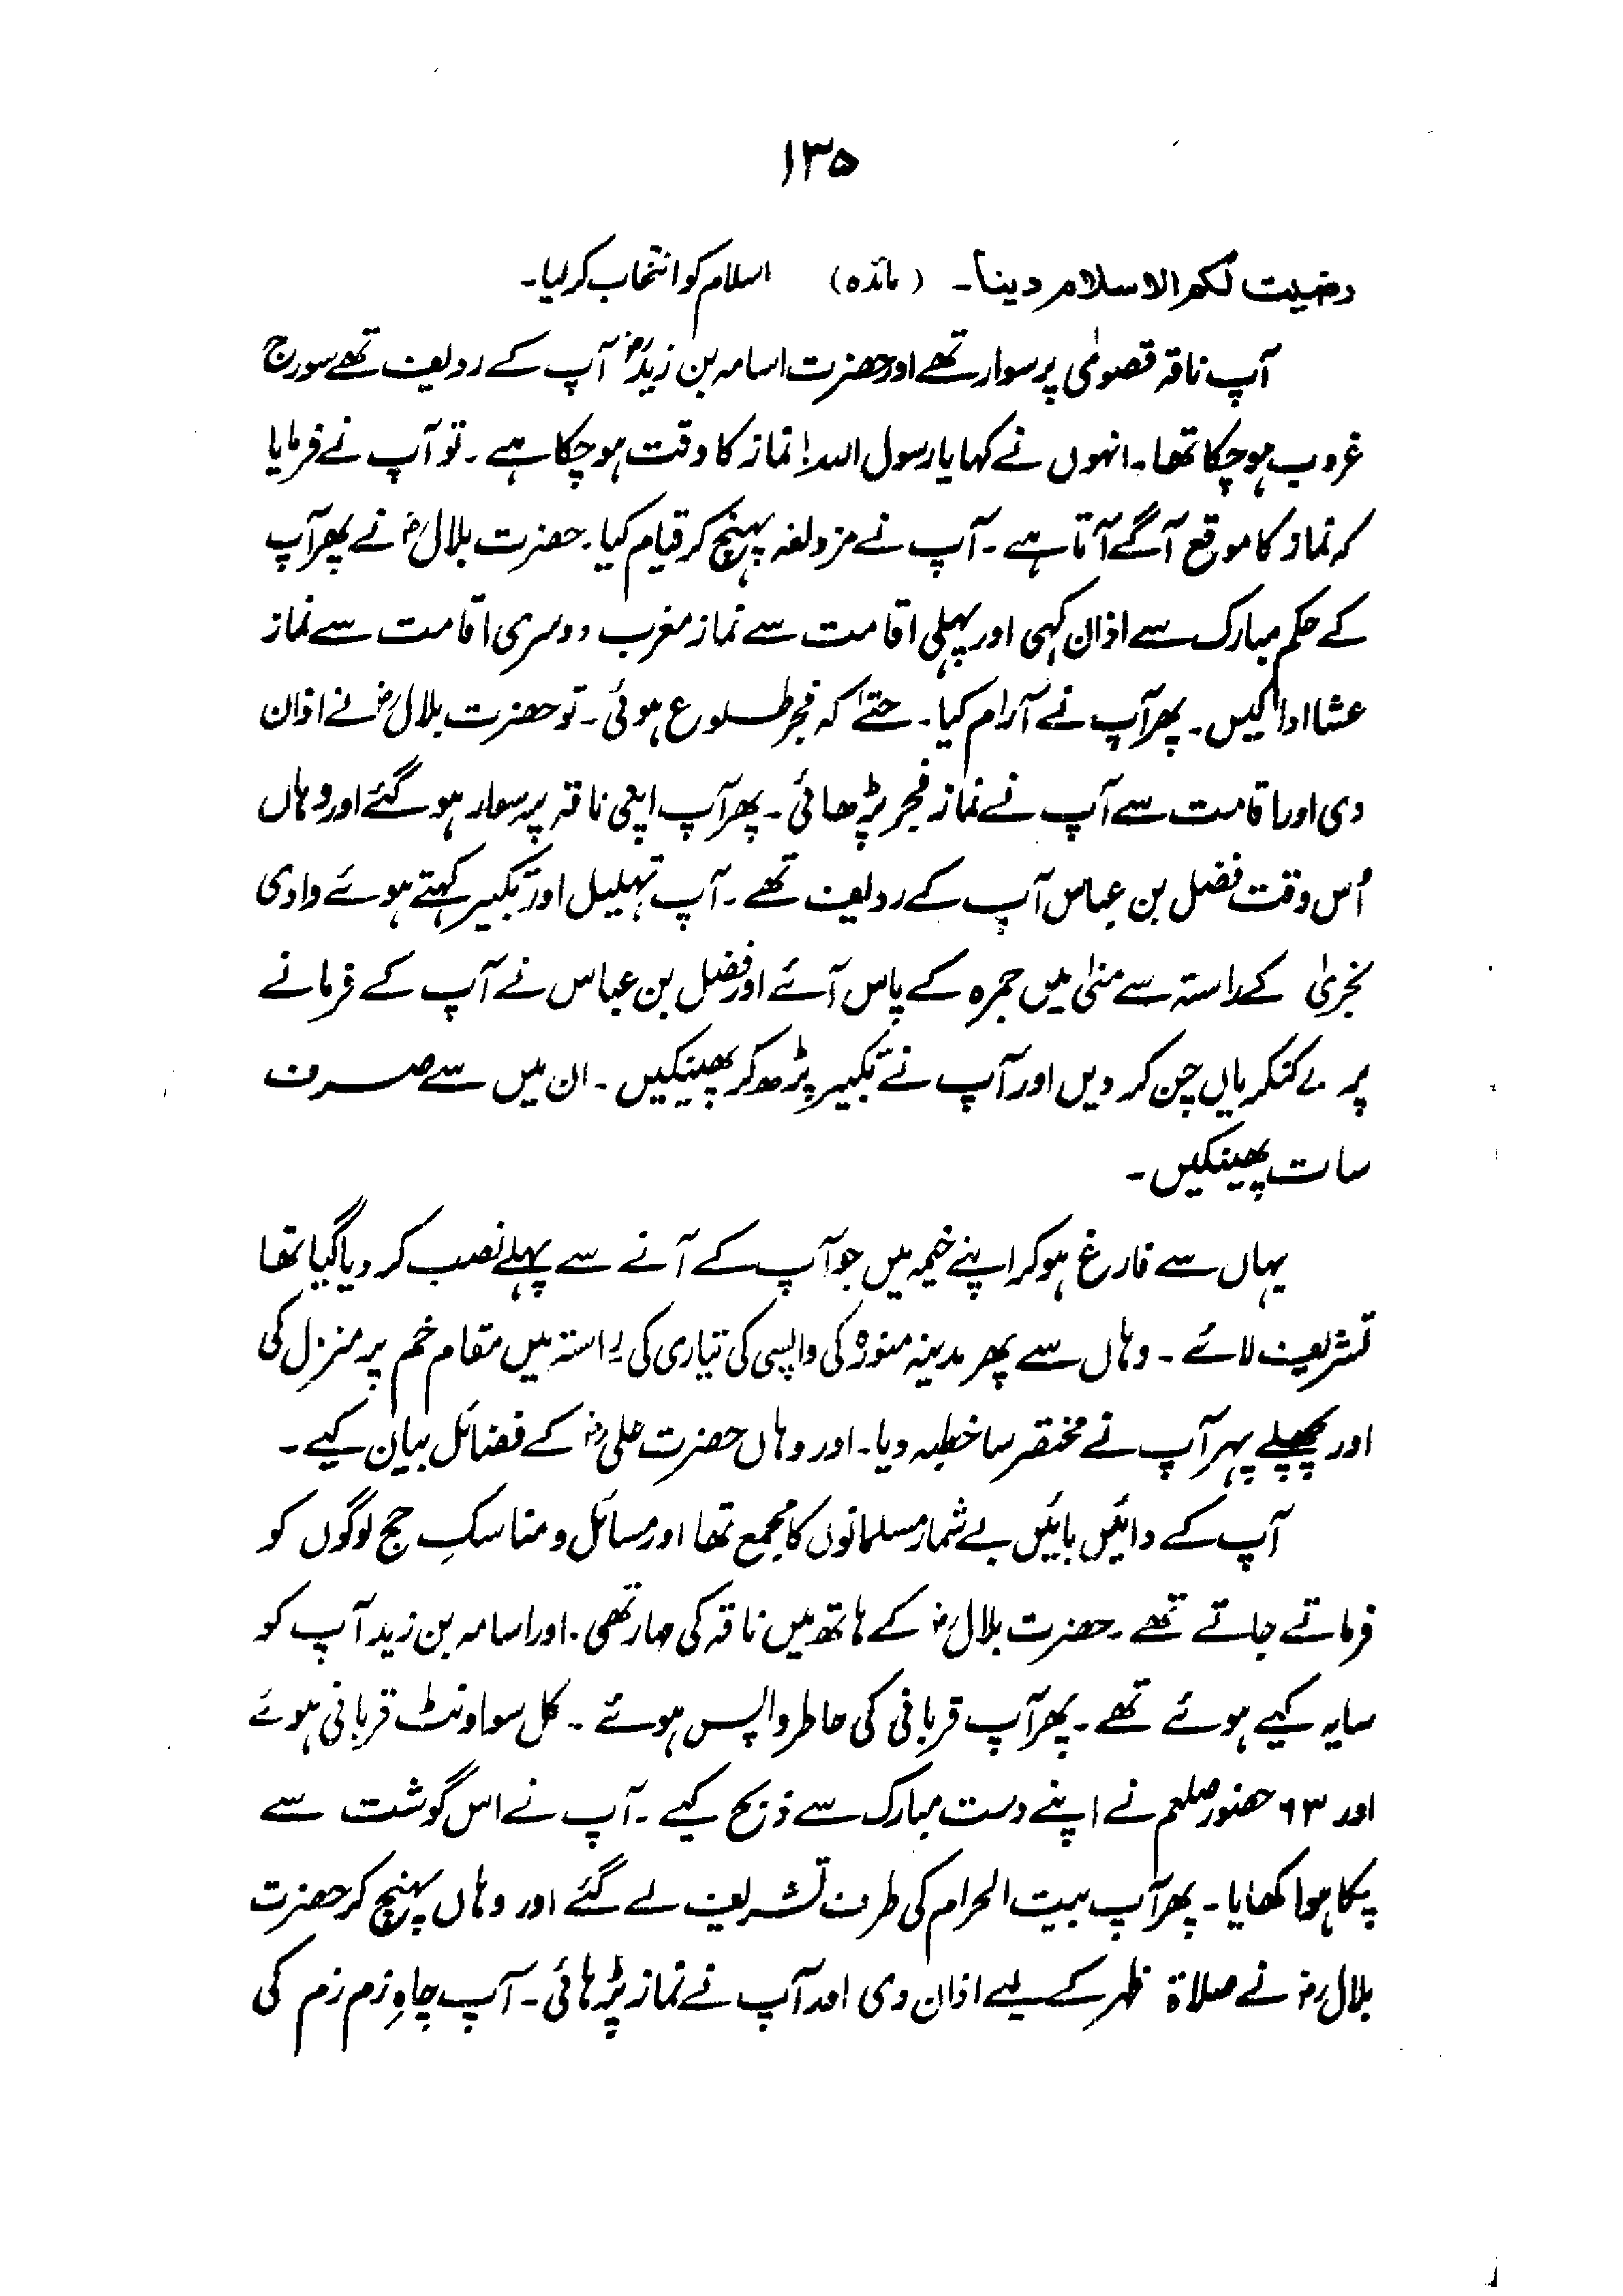 ۱۳۵
رضیت لکم الاسلام دینا۔ (مائدہ) اسلام کو انتخاب کر لیا۔
آپ ناقہ قصویٰ پر سوار تھے اور حضرت اسامہ بن زیدؓ آپ کے ردیف تھے سورج
غروب ہو چکا تھا۔ انہوں نے کہا یا رسول اللہ! نماز کا وقت ہو چکا ہے۔ تو آپ نے فرمایا
کہ نماز کا موقع آگے آتا ہے۔ آپ نے مزدلفہ پہنچ کر قیام کیا۔ حضرت بلالؓ نے پھر آپ
کے حکم مبارک سے اذان کہی اور پہلی اقامت سے نماز مغرب دوسری اقامت سے نماز
عشا ادا کیں۔ پھر آپ نے آرام کیا۔ حتےٰ کہ فجر طلوع ہوئی۔ تو حضرت بلالؓ نے اذان
دی اور اقامت سے آپ نے نماز فجر پڑھائی۔ پھر آپ اپنی ناقہ پر سوار ہو گئے اور وہاں
اُس وقت فضل بن عباس آپ کے ردیف تھے۔ آپ تہلیل اور تکبیر کہتے ہوئے وادی
کے راستہ سے منیٰ میں جمرہ کے پاس آئے اور فضل بن عباس نے آپ کے فرمانے
پر کنکریاں چن کر دیں اور آپ نے تکبیر پڑھ کر پھینکیں۔ ان میں سے صرف
سات پھینکیں۔
یہاں سے فارغ ہو کر اپنے خیمہ میں جو آپ کے آنے سے پہلے نصب کر دیا گیا تھا
تشریف لائے۔ وہاں سے پھر مدینہ منورہ کی واپسی کی تیاری کی راستہ میں مقام خم پر منزل کی
اور پچھلے پہر آپ نے مختصر سا خطبہ دیا۔ اور وہاں حضرت علیؓ کے فضائل بیان کیے۔
آپ کے دائیں بائیں بے شمار مسلمانوں کا مجمع تھا اور مسائل و مناسکِ حج لوگوں کو
فرماتے جاتے تھے۔ حضرت بلالؓ کے ہاتھ میں ناقہ کی مہار تھی۔ اور اسامہ بن زید آپ کو
سایہ کیے ہوئے تھے۔ پھر آپ قربانی کی خاطر واپس ہوئے۔ کل سو اونٹ قربانی ہوئے
اور ۶۳ حضور صلعم نے اپنے دست مبارک سے ذبح کیے۔ آپ نے اس گوشت سے
پکا ہوا کھایا۔ پھر آپ بیت الحرام کی طرف تشریف لے گئے اور وہاں پہنچ کر حضرت
بلالؓ نے صلاۃ ظہر کے لیے اذان دی اور آپ نے نماز پڑہائی۔ آپ چاہِ زم زم کی